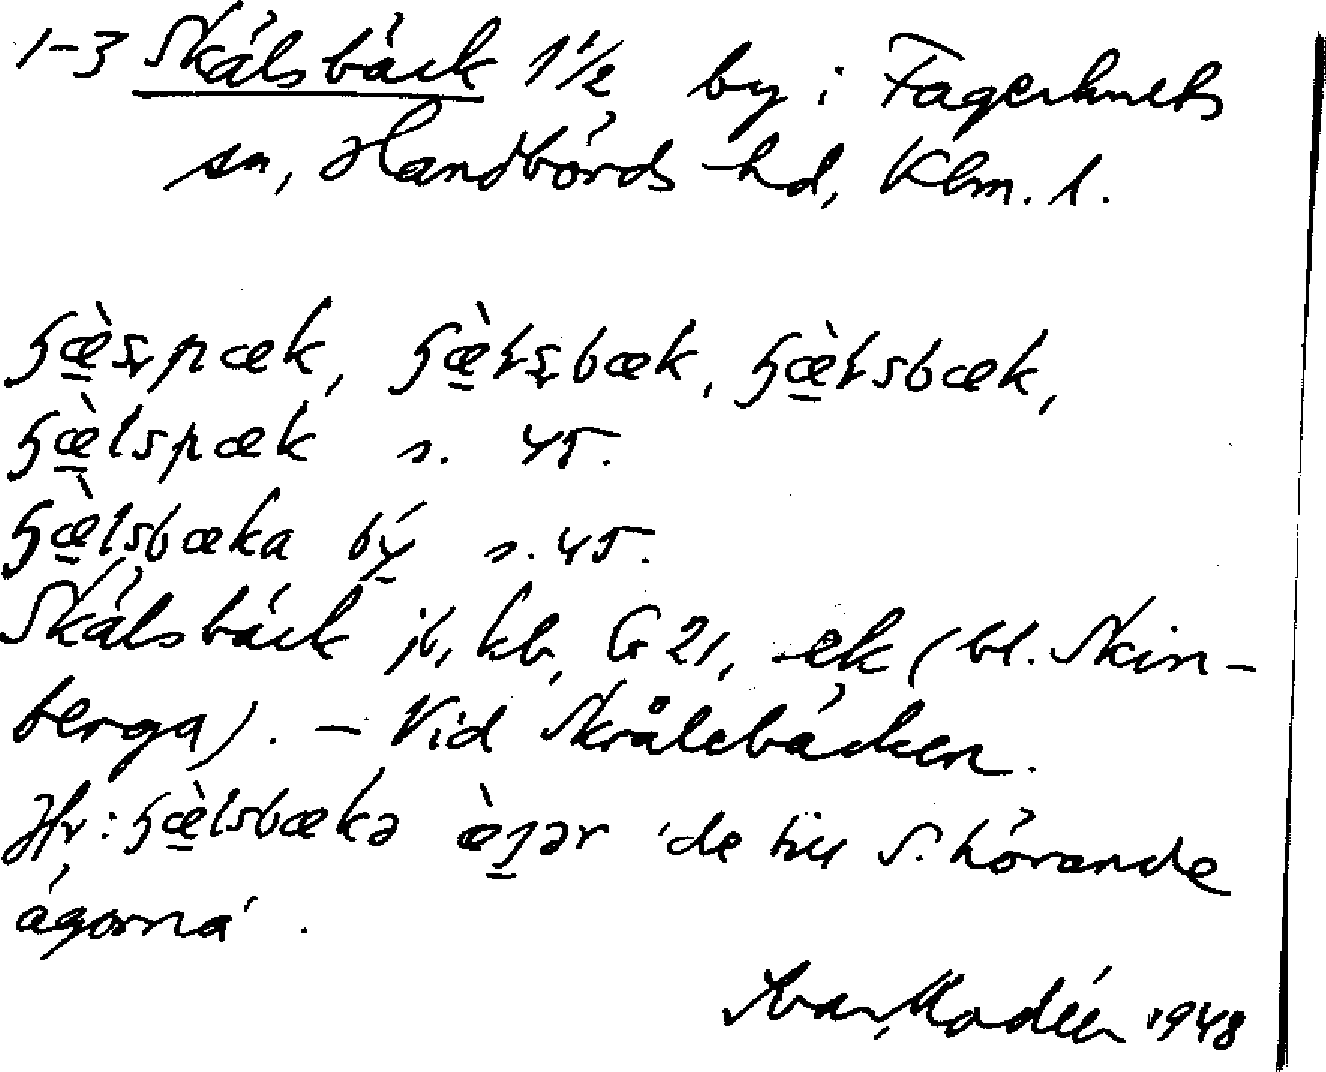 1-3 Skälsbäck 1 1/2 by i Fagerhults
sn, Handbörds hd, Klm. l.
ɧæ̀spæk, ɧæ̀ɫsbæk, ɧæ̀ɫsbæk,
ɧæ̀lspæk s. 45.
ɧæ̀lsbæka bý s. 45.
Skälsbäck jb, kb, G 21, ek (bl. Skin-
berga). – Vid Skrålebäcken.
Hr: ɧæ̀lsbækə æ̀ɡər 'de till S. hörande
ägorna'.
Ivar Modéer 1948